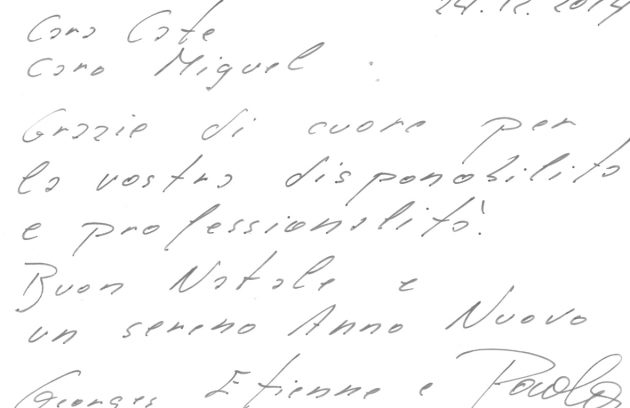 24.12.2014
Cara Cate
Caro Miguel
Grazie di cuore per
la vostra disponobilità
e professionalità.
Buon Natale e
un sereno Anno Nuovo
Georges Etienne e Paola